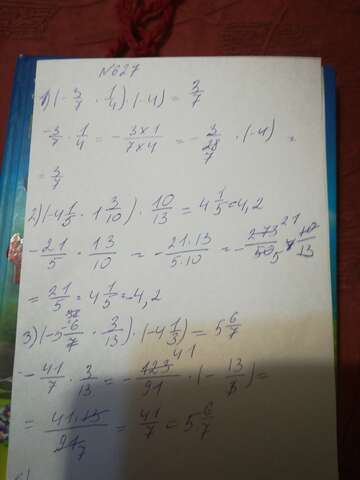 №627
1) (-3/7 · 1/4) · (-4) = 3/7
-3/7 · 1/4 = -3×1/7×4 = -3/28 · (-4) =
7
= 3/7
2) (-4 1/5 · 1 3/10) · 10/13 = 4 1/5 = 4,2
-21/5 · 13/10 = -21·13/5·10 = -273/50 · 10/13
21
5
= 21/5 = 4 1/5 = 4,2
3) (-5 6/7 · 3/13) · (-4 1/3) = 5 6/7
-41/7 · 3/13 = -123/91 · (-13/3) =
41
= 41·13/91 = 41/7 = 5 6/7
7